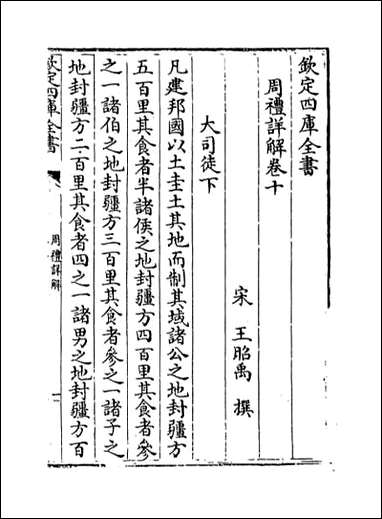 欽定四庫全書
周禮詳解卷十
宋 王昭禹 撰
大司徒下
凡建邦國以土圭土其地而制其域諸公之地封疆方
五百里其食者半諸侯之地封疆方四百里其食者參
之一諸伯之地封疆方三百里其食者參之一諸子之
地封疆方二百里其食者四之一諸男之地封疆方百
欽定四庫全書
周禮詳解
一